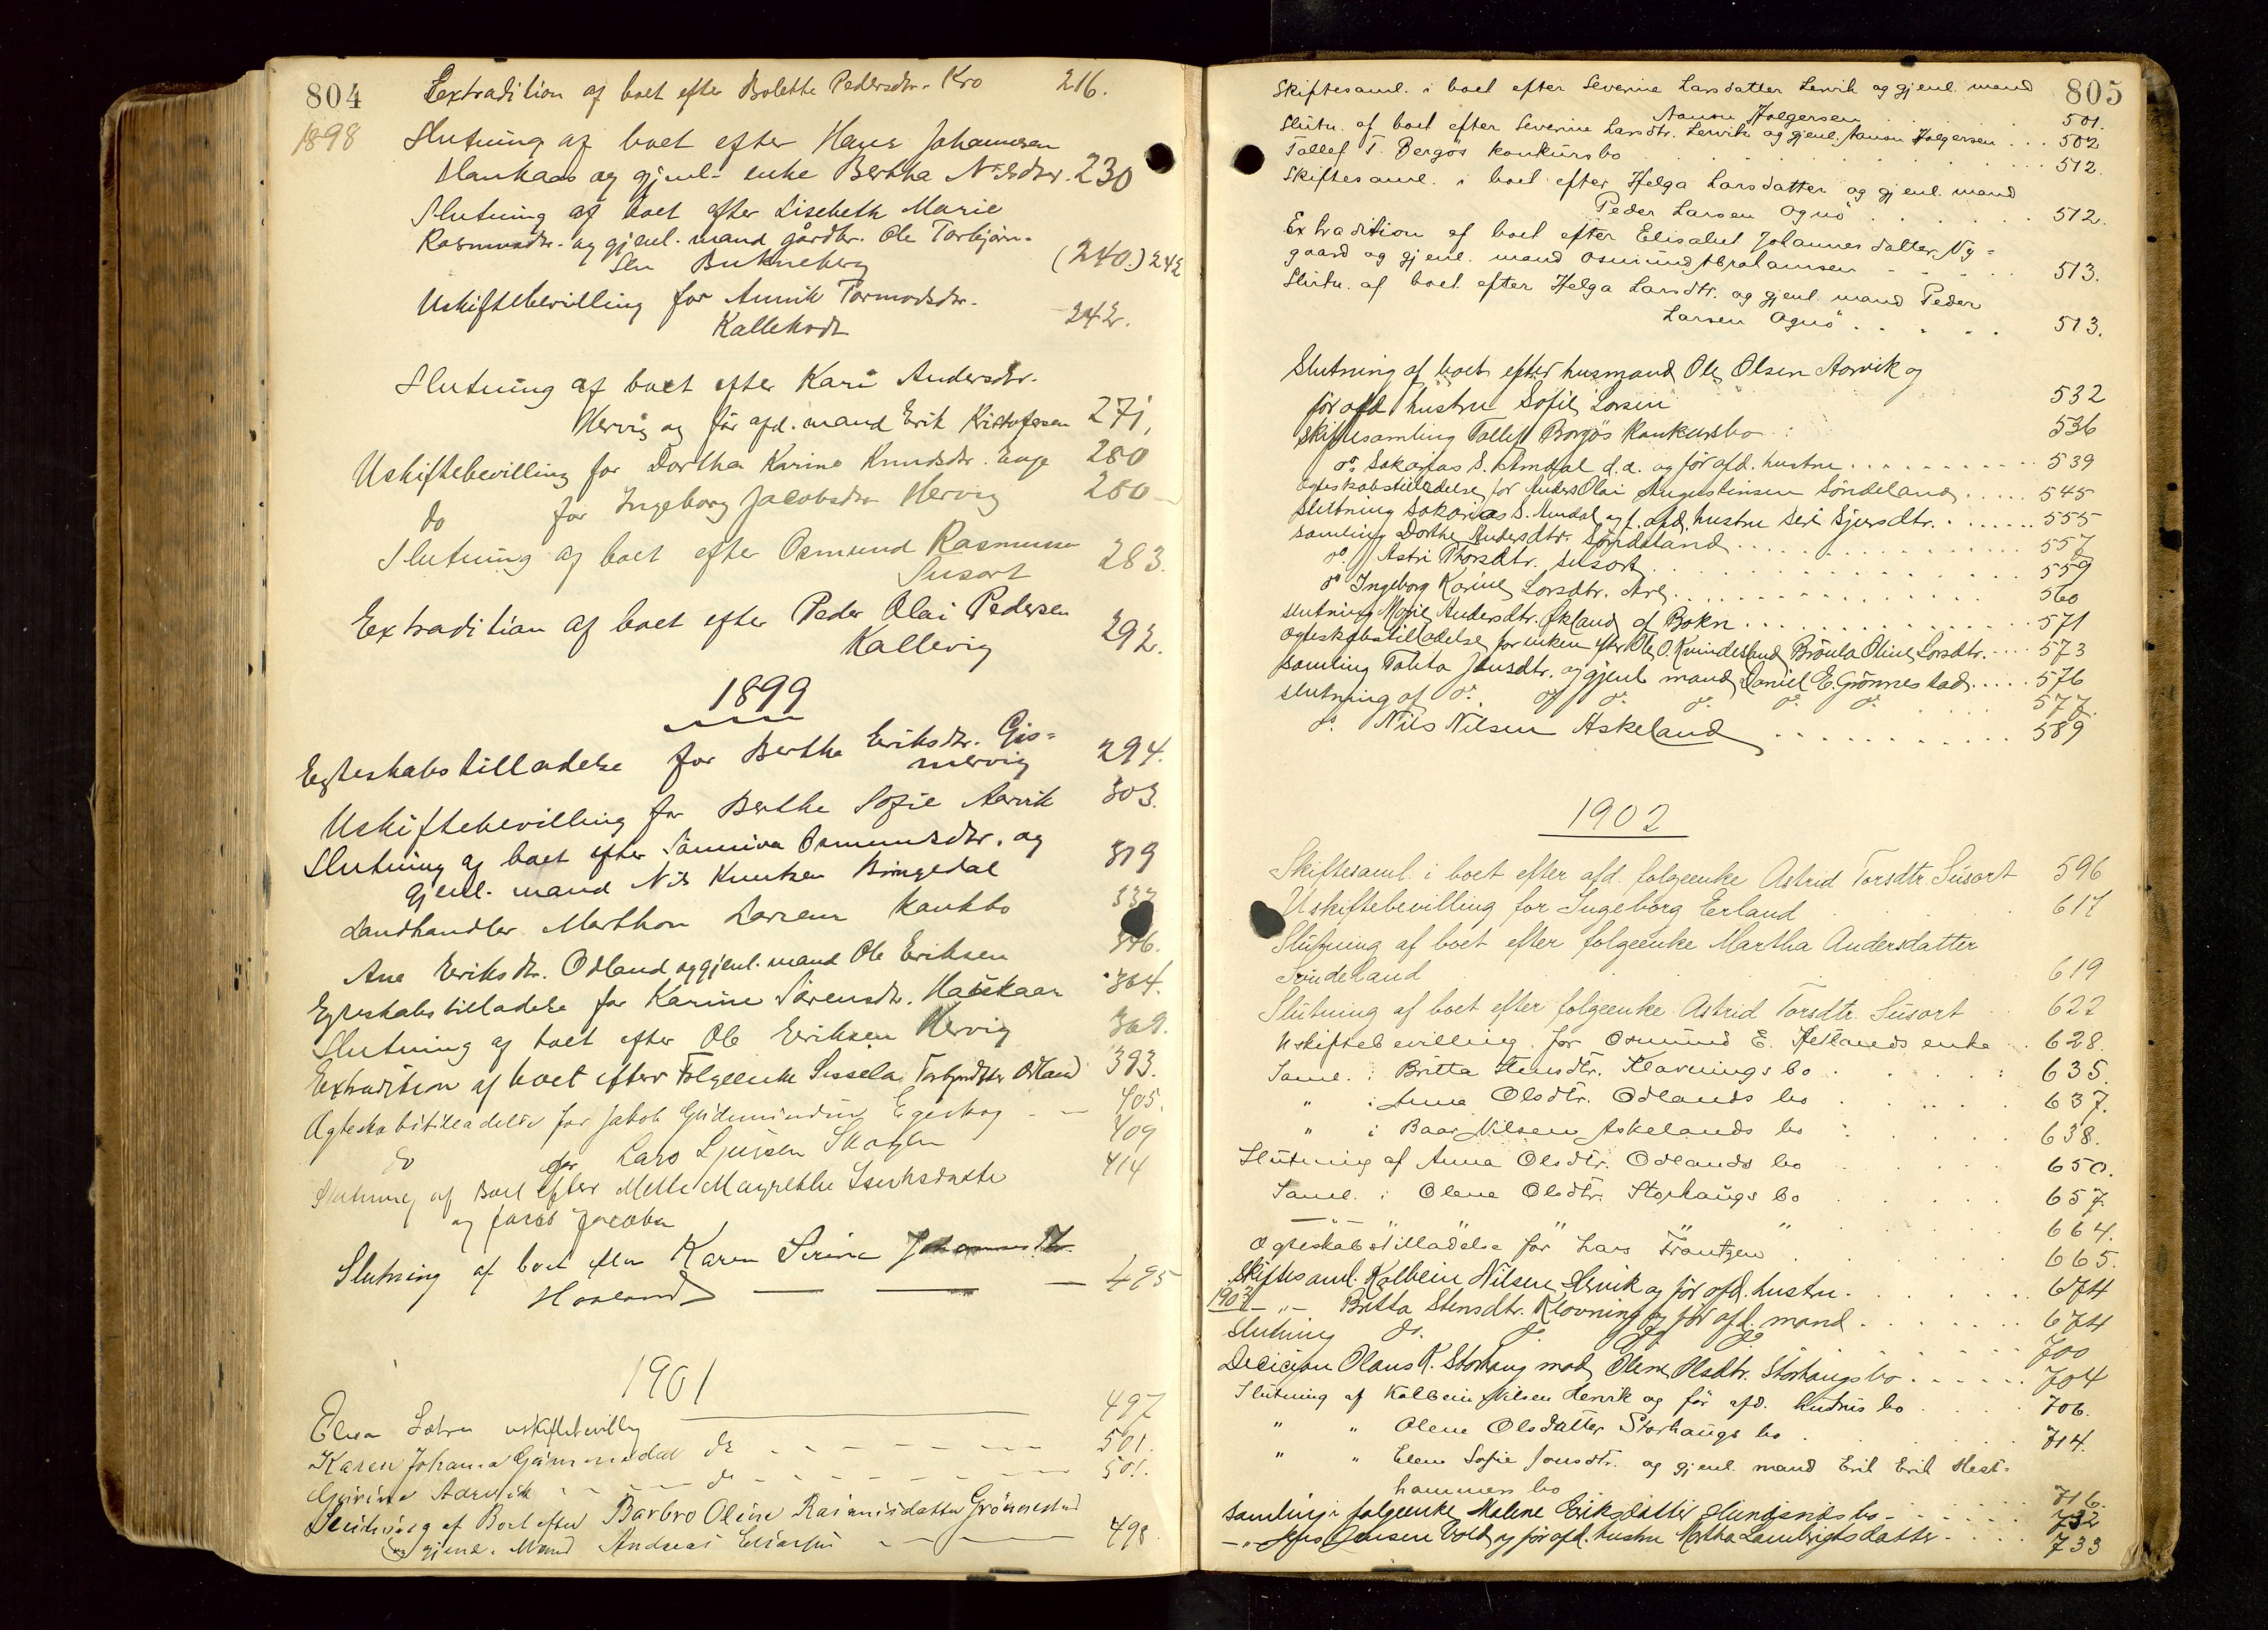 804
Extradition af boet efter Bolette Pedersdtr. Kro 216.
1898
Slutning af boet efter Hans Johannesen
Haukaas og gjenl. enke Bertha Nilsdtr. 230
Slutning af boet efter Lisebeth Marie
Rasmusdtr. og gjenl. mand gårdbr. Ole Torbjørn-
sen Bukneberg (240.) 242
Uskiftebevilling for Annik Tormodsdtr.
Kallekodt 242.
Slutning af boet efter Kari Andersdtr.
Hervig og før afd. mand Erik Kristofersen 271,
Uskiftebevilling for Dorthea Karine Knudsdtr. Eage 280
do for Ingeborg Jacobsdtr Hervig 280
Slutning af boet efter Osmund Rasmussen
Susort 283.
Extradition af boet efter Peder Olai Pedersen
Kallevig 292.
1899
Egteskabstilladelse for Bertha Eriksdtr. Gis=
mervig 294.
Uskiftebevilling for Berthe Sofie Aarvik 303.
Slutning af boet efter Sønniva Osmundsdtr. og
gjenl. mand Nils Knutsen Bringedal 319
Landhandler Marthon Larsens konkbo
Ane Eriksdtr. Odland og gjenl. mand Ole Eriksen
Egteskabstilladelse for Karine Sørensdtr. Haukaas 364.
Slutning af boet efter Ole Eriksen Hervig 369.
Extradition af boet efter Følgeenke Sissela Torbjørnsdtter Odland 393.
Ægteskabstilladelse for Jakob Gudmundsen Egeskog 405.
do for Lars Sjursen Skogen 409
Slutning af Boet efter Mette Magrethe Isaksdatter 414
og Jacob Jacobsen
Slutning af boet efter Karen Serine
Hovland 495
1901
Elisa uskiftebevilling 497
Karen Johanna Gummedal do 501.
Aarvik do 501.
Slutning af Boet efter Barbro Oline Rasmusdatter Grønnestad
og gjenl. Mand Andreas Eliassen 498
805
Skiftesaml. i boet efter Severine Larsdatter Lervik og gjenl. mand
Aanon Holgersen 501.
Slutn. af boet efter Severine Larsdtr. Lervik og gjenl. Aanon Holgersen 502
Tollef T. Bergøs konkursbo 512.
Skiftesaml. i boet efter Helga Larsdatter og gjenl. mand
Peder Larsen Ognø 512.
Extradition af boet efter Elisabet Johannesdatter Ny=
gaard og gjenl. mand Osmund Abrahamsen 513.
Slutn. af boet efter Helga Larsdtr. og gjenl. mand Peder
Larsen Ognø 513.
Slutning af boet efter husmand Ole Olsen Aarvik og
før afd. hustru Sofie Larsen 532
Skiftesamling Tollef Borgøs Konkursbo 536
do Sakarias S. Amdal d.a. og før afd. hustru 539
Ægteskabstilladelse for Anders Olai Augustinsen Søndeland 545
Slutning Sakarias S. Amdal og f. afd. hustru Siri Sjursdtr. 555
Samling Dorthe Andersdtr. Søndeland 557
do Astri Thorsdtr. Susort 559
do Ingeborg Karine Larsdtr. Are 560
Slutning Marie Andersdtr. Økland af Bokn 571
Ægteskabstilladelse for enken efter Ole O. Kvindesland Brönla Oline Larsdtr. 573
Samling Tolita Jansdtr. og gjenl mand Daniel E. Grønnestad 576
Slutning af do. do do. do. do. do. 577.
do. Nils Nilsen Askeland 589
1902
Skiftesaml. i boet efter afd. følgeenke Astrid Torsdtr. Susort 596
Uskiftebevilling for Ingeborg Erland 617
Slutning af boet efter følgeenke Martha Andersdatter
Søndeland 619
Slutning af boet efter følgeenke Astrid Torsdtr. Susort 622
Uskiftebevilling for Osmund E. Hetlands enke 628.
Saml. i Britta Stensdtr. Klovnings bo 635.
" i Anna Olsdtr. Odlands bo 637.
" i Baar Nilsen Askelands bo 638.
Slutning af Anna Olsdtr. Odlands bo 650.
Saml. i Olene Olsdtr. Storhaugs bo 657.
—"— " " " " 664.
Ægteskabstilladelse for Lars Frantzen 665.
Skiftesaml. Kolbein Nilsen Hervik og før afd. hustru 674
1903 —"— Britta Stensdtr. Klovning og før afd. mand 674
Slutning do. do. do do 700
Decision Olaus K. Storhaug mod Olene Olsdtr. Storhaugs bo 704
Slutning af Kolbein Nilsen Hervik og før afd. hustrus bo 706.
" " Olene Olsdatter Storhaugs bo 714.
" " Elen Sofie Jonsdtr. og gjenl. mand Erik Erik Hest=
hammers bo 716.
Samling i følgeenke Malene Eriksdatter Hundsnæs bo 732
—"— Jens Jensen Vold og før afd. hustru Martha Lambrigtsdatter 733